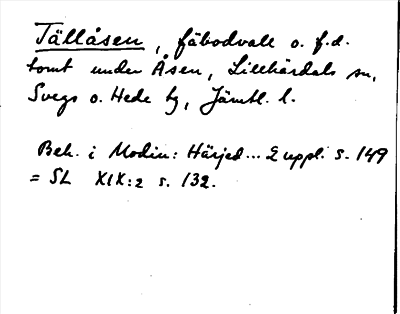 Tällåsen, fäbodvall o. f.d.
tomt under Åsen, Lillhärdals sn,
Svegs o. Hede tg, Jämtl. l.
Beh. i Modin: Härjed... 2 uppl. s. 149
= SL XIX:2 s. 132.